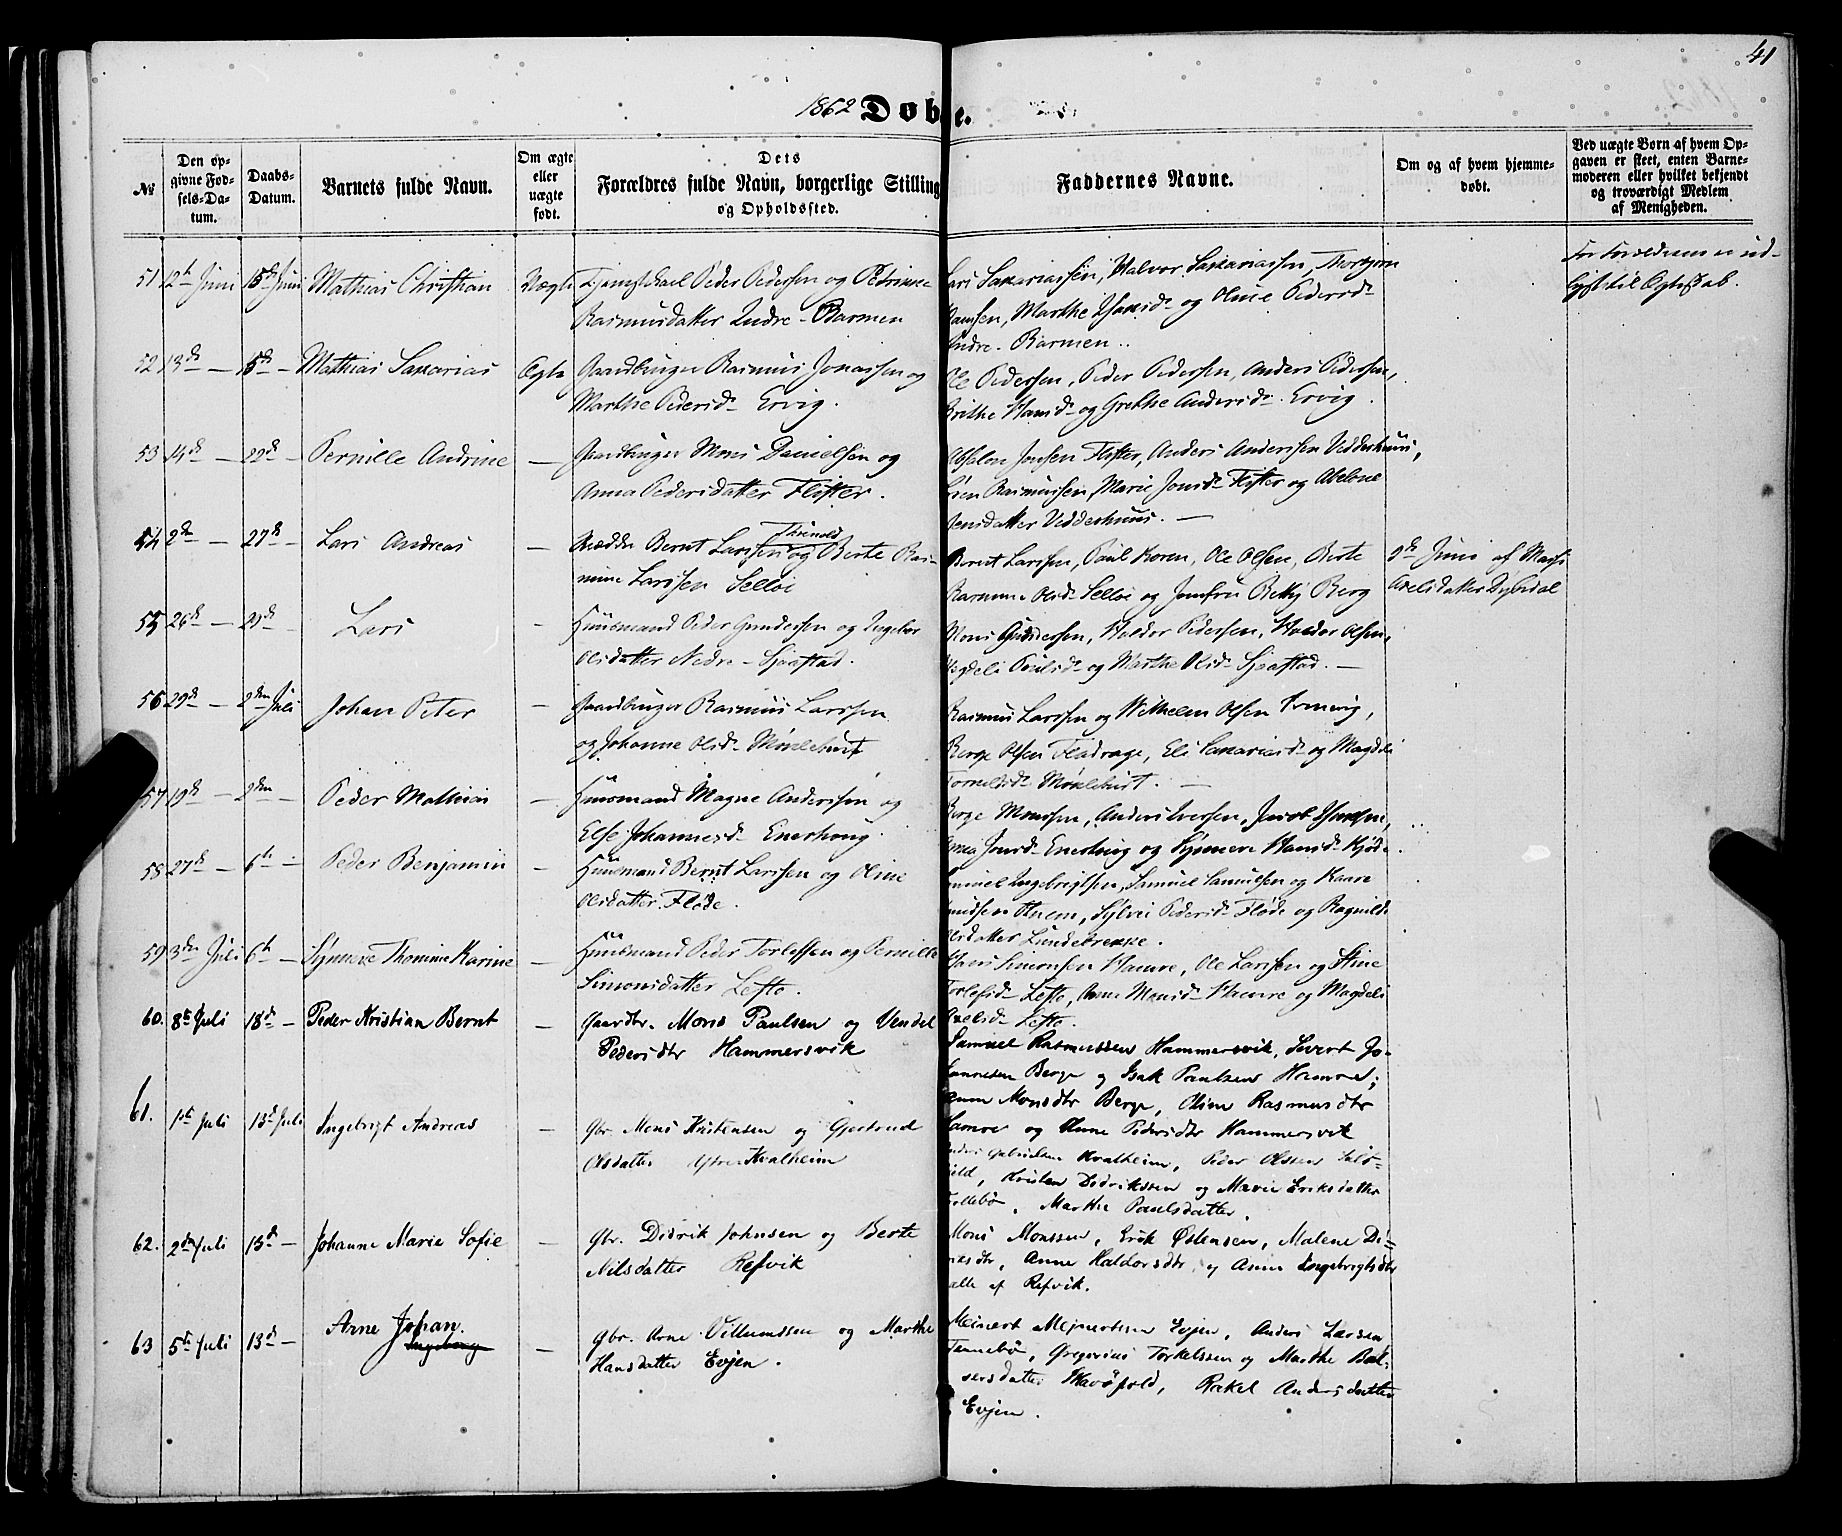 41
1862 Døbe.
№
Den op-
givne Fød-
sels-Da-
tum.
Daabs-
Datum.
Barnets fulde Navn.
Om ægte
eller
uægte
født.
Dets
Forældres fulde Navn, borgerlige Stilling
og Opholdssted.
Faddernes Navne.
Om og af hvem hjemme-
døbt.
Ved uægte Børn af hvem Op-
gaven er skeet, enten Barne-
moderen eller hvilket bekjendt
og troværdigt Medlem
af Menigheden.
51 12te Juni 15de Juni Mathias Christian Uægte Peder Pedersen og Petrine
Rasmusdatter Indre-Barmen
Lars Saxariassen, Halvor Saxariassen, Thorbjørn
Hansen, Marthe og Oline Pedersd-
Indre-Barmen..
til Ægteskab.
52 13de — 15de — Mathias Saxarias Ægte Gaardbruger Rasmus Jonassen og
Marthe Pedersd- Ervig.
Ole Pedersen, Peder Pedersen, Anders Pedersen,
Brithe Hansd- og Grethe Andersd- Ervig.
53 14de — 22de — Pernille Andrine — Gaardbruger Mons Danielsen og
Anna Pedersdatter Flister.
Absalon Jonsen Flister, Anders Anderssen Vedderhuus,
Rasmussen, Marie Jonsd- Flister og Abelone
Jensdatter Vedderhuus. —
54 2den — 27de — Lars Andreas — Bernt Larssen og Berte Ras-
mine Larssen Selløe
Bernt Larssen, Paul Koren, Ole Olsen, Berte
Rasmine Olsd- Selløe og Jomfru Berg
9de Juni af
Axelsdatter Dybedal
55 26de — 29de — Lars — Huusmand Peder Gundersen og Ingebor
Olsdatter Nedre-Sjaastad.
Mons Gundersen, Haldor Pedersen, Haldor Olsen,
Magdeli Poulsd- og Marthe Olsd- Sjaastad. —
56 29de — 2den Juli Johan Peter — Gaardbruger Rasmus Larssen
og Johanne Olsd- Møklebust
Rasmus Larssen og Wilhelm Olsen
Berge Olsen Fladrage, Eli Saxariasd- og Magdeli
Møklebust. —
57 19de — 2den — Peder Mathias — Huusmand Magne Anderssen og
Else Johannesd- Enerhoug.
Berge Monssen, Anders Iversen, Jacob
Jonsd- Enerhoug og Synneve Hansd- Kjøde.
58 27de — 6te — Peder Benjamin — Huusmand Bernt Larssen og Oline
Olsdatter Fløde.
Ingebrigtsen, Samuel Samuelsen og Kaare
Sylvei Pedersd- Fløde og Ragnilde
Olsdatter Lundebrekke.
59 3die Juli 6te — Synneve Thomine Karine — Huusmand Peder Torlefssen og Pernille
Simonsdatter Lefto.
Hans Simonsen Hamre, Ole Larssen og Stine
Torlefsd- Lefto, Anne Monsd- Hamre og Magdeli
Axelsd- Lefto.
60. 8de Juli 13de — Peder Kristian Bernt — Gaardbr. Mons Paulsen og Vendel
Pedersdtr Hammersvik
Samuel Rasmussen Hammersvik, Sivert Jo-
hannesen Berge og Isak Paulsen Hamre;
Anne Monsdtr Berge, Oline Rasmusdtr
Hamre og Anne Pedersdtr Hammersvik
61. 1ste Juli 13de Juli Ingebrigt Andreas — Gbr. Mons Kristensen og Gjertrud
Olsdatter Ytre Kvalheim
Anders Gabrielsen Kvalheim, Peder Olssen
Kristen Didrikssen og Marie Eriksdatter
Tollebø, Marthe Paulsdatter.
62. 2den Juli 13de — Johanne Marie Sofie — Gbr. Didrik Johnsen og Berte
Nilsdatter Refvik
Mons Monssen, Erik Østensen, Malene Di-
riksdtr, Anne Haldorsdtr, og Anne Ingebrigtsdtr
alle af Refvik.
63 5te Juli 13de — Arne Johan. Ingeborg — Gbr. Arne Villumssen og Marthe
Hansdatter Evjen.
Meinert Mejnertsen Evjen, Anders Larsen
Tennebø, Gregorius Torkelssen og Marthe Bal-
sersdatter Rakel Andersdatter
Evjen.